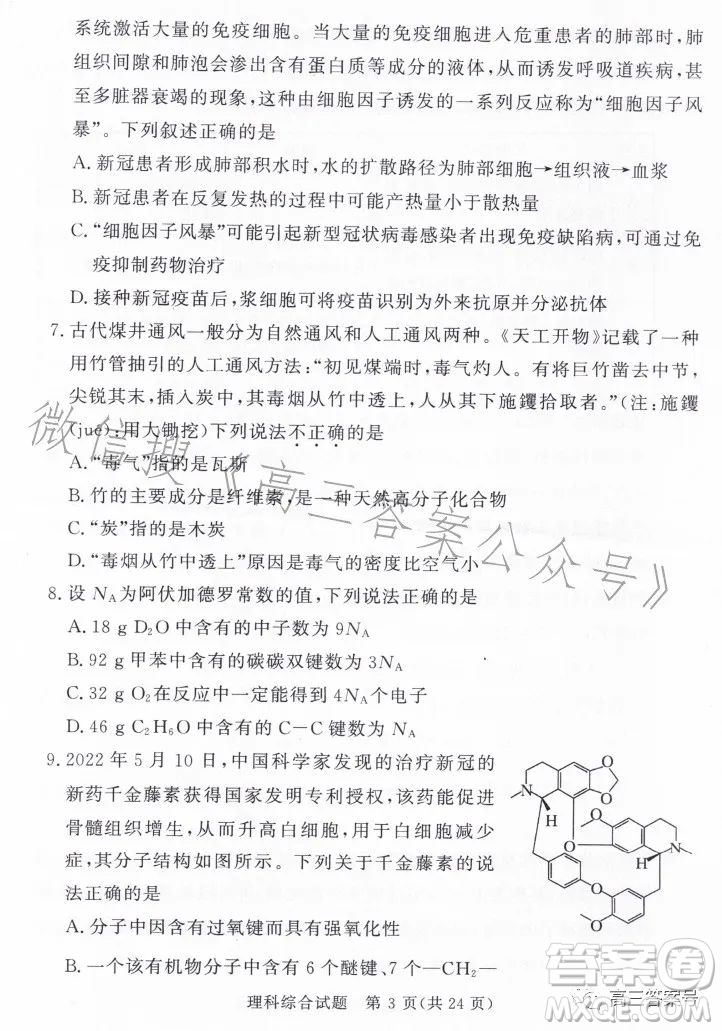 系统激活大量的免疫细胞。当大量的免疫细胞进入危重患者的肺部时,肺
组织间隙和肺泡会渗出含有蛋白质等成分的液体,从而诱发呼吸道疾病,甚
至多脏器衰竭的现象,这种由细胞因子诱发的一系列反应称为“细胞因子风
暴”。下列叙述正确的是
A. 新冠患者形成肺部积水时,水的扩散路径为肺部细胞→组织液→血浆
B. 新冠患者在反复发热的过程中可能产热量小于散热量
C. “细胞因子风暴”可能引起新型冠状病毒感染者出现免疫缺陷病,可通过免
疫抑制药物治疗
D. 接种新冠疫苗后,浆细胞可将疫苗识别为外来抗原并分泌抗体
7. 古代煤井通风一般分为自然通风和人工通风两种。《天工开物》记载了一种
用竹管抽引的人工通风方法:“初见煤端时,毒气灼人。有将巨竹凿去中节,
尖锐其末,插入炭中,其毒烟从竹中透上,人从其下施钁拾取者。”(注:施钁
(jué),用大锄挖)下列说法不正确的是
A. “毒气”指的是瓦斯
B. 竹的主要成分是纤维素,是一种天然高分子化合物
C. “炭”指的是木炭
D. “毒烟从竹中透上”原因是毒气的密度比空气小
8. 设 NA为阿伏加德罗常数的值,下列说法正确的是
A. 18 g D2O中含有的中子数为 9NA
B. 92 g 甲苯中含有的碳碳双键数为 3NA
C. 32 g O2在反应中一定能得到 4NA个电子
D. 46 g C2H6O中含有的 C—C 键数为 NA
9. 2022 年 5 月 10 日,中国科学家发现的治疗新冠的
新药千金藤素获得国家发明专利授权,该药能促进
骨髓组织增生,从而升高白细胞,用于白细胞减少
症,其分子结构如图所示。下列关于千金藤素的说
法正确的是
A. 分子中因含有过氧键而具有强氧化性
B. 一个该有机物分子中含有 6 个醚键、7 个—CH2—
O
O
N
H
O
MeO
H
N
O
MeO
理科综合试题 第 3 页(共 24 页)
微信搜《高三答案公众号》
答案圈
高三答案号